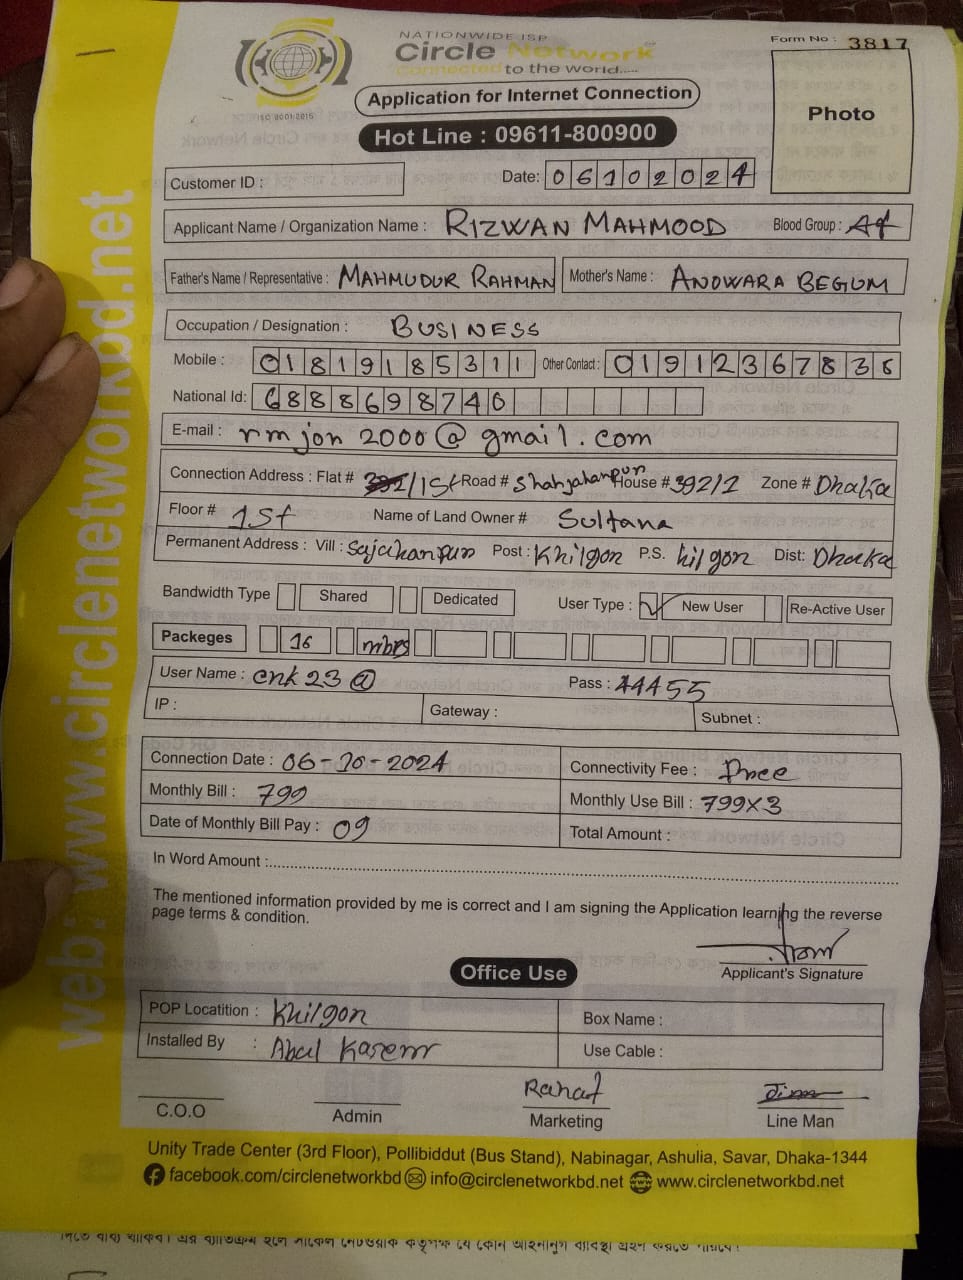 NATIONWIDE ISP
Circle Network
Connected to the world.....
Form No : 3817
ISO 9001:2015
Application for Internet Connection
Hot Line : 09611-800900
Photo
Customer ID :
Date: 06102024
Applicant Name / Organization Name : RIZWAN MAHMOOD Blood Group : A+
Father's Name / Representative : MAHMUDUR RAHMAN Mother's Name : ANOWARA BEGUM
Occupation / Designation : BUSINESS
Mobile : 01819185311 Other Contact : 01912367836
National Id: 6888698740
E-mail : rmjon2000@gmail.com
Connection Address : Flat # /1st Road # Shahjahanpur House # 392/2 Zone # Dhaka
Floor # 1st Name of Land Owner # Sultana
Permanent Address : Vill : Sajahanpur Post : Khilgon P.S. kilgon Dist: Dhaka
Bandwidth Type Shared Dedicated User Type : New User Re-Active User
Packeges 16 mbps
User Name : cnk23@ Pass : 44455
IP : Gateway : Subnet :
Connection Date : 06-10-2024 Connectivity Fee : Free
Monthly Bill : 799 Monthly Use Bill : 799x3
Date of Monthly Bill Pay : 09 Total Amount :
In Word Amount :
The mentioned information provided by me is correct and I am signing the Application learning the reverse
page terms & condition.
Applicant's Signature
Office Use
POP Locatition : Khilgon Box Name :
Installed By : Abul Kasem Use Cable :
Rahat
C.O.O Admin Marketing Line Man
Unity Trade Center (3rd Floor), Pollibiddut (Bus Stand), Nabinagar, Ashulia, Savar, Dhaka-1344
facebook.com/circlenetworkbd info@circlenetworkbd.net www.circlenetworkbd.net
web: www.circlenetworkbd.net